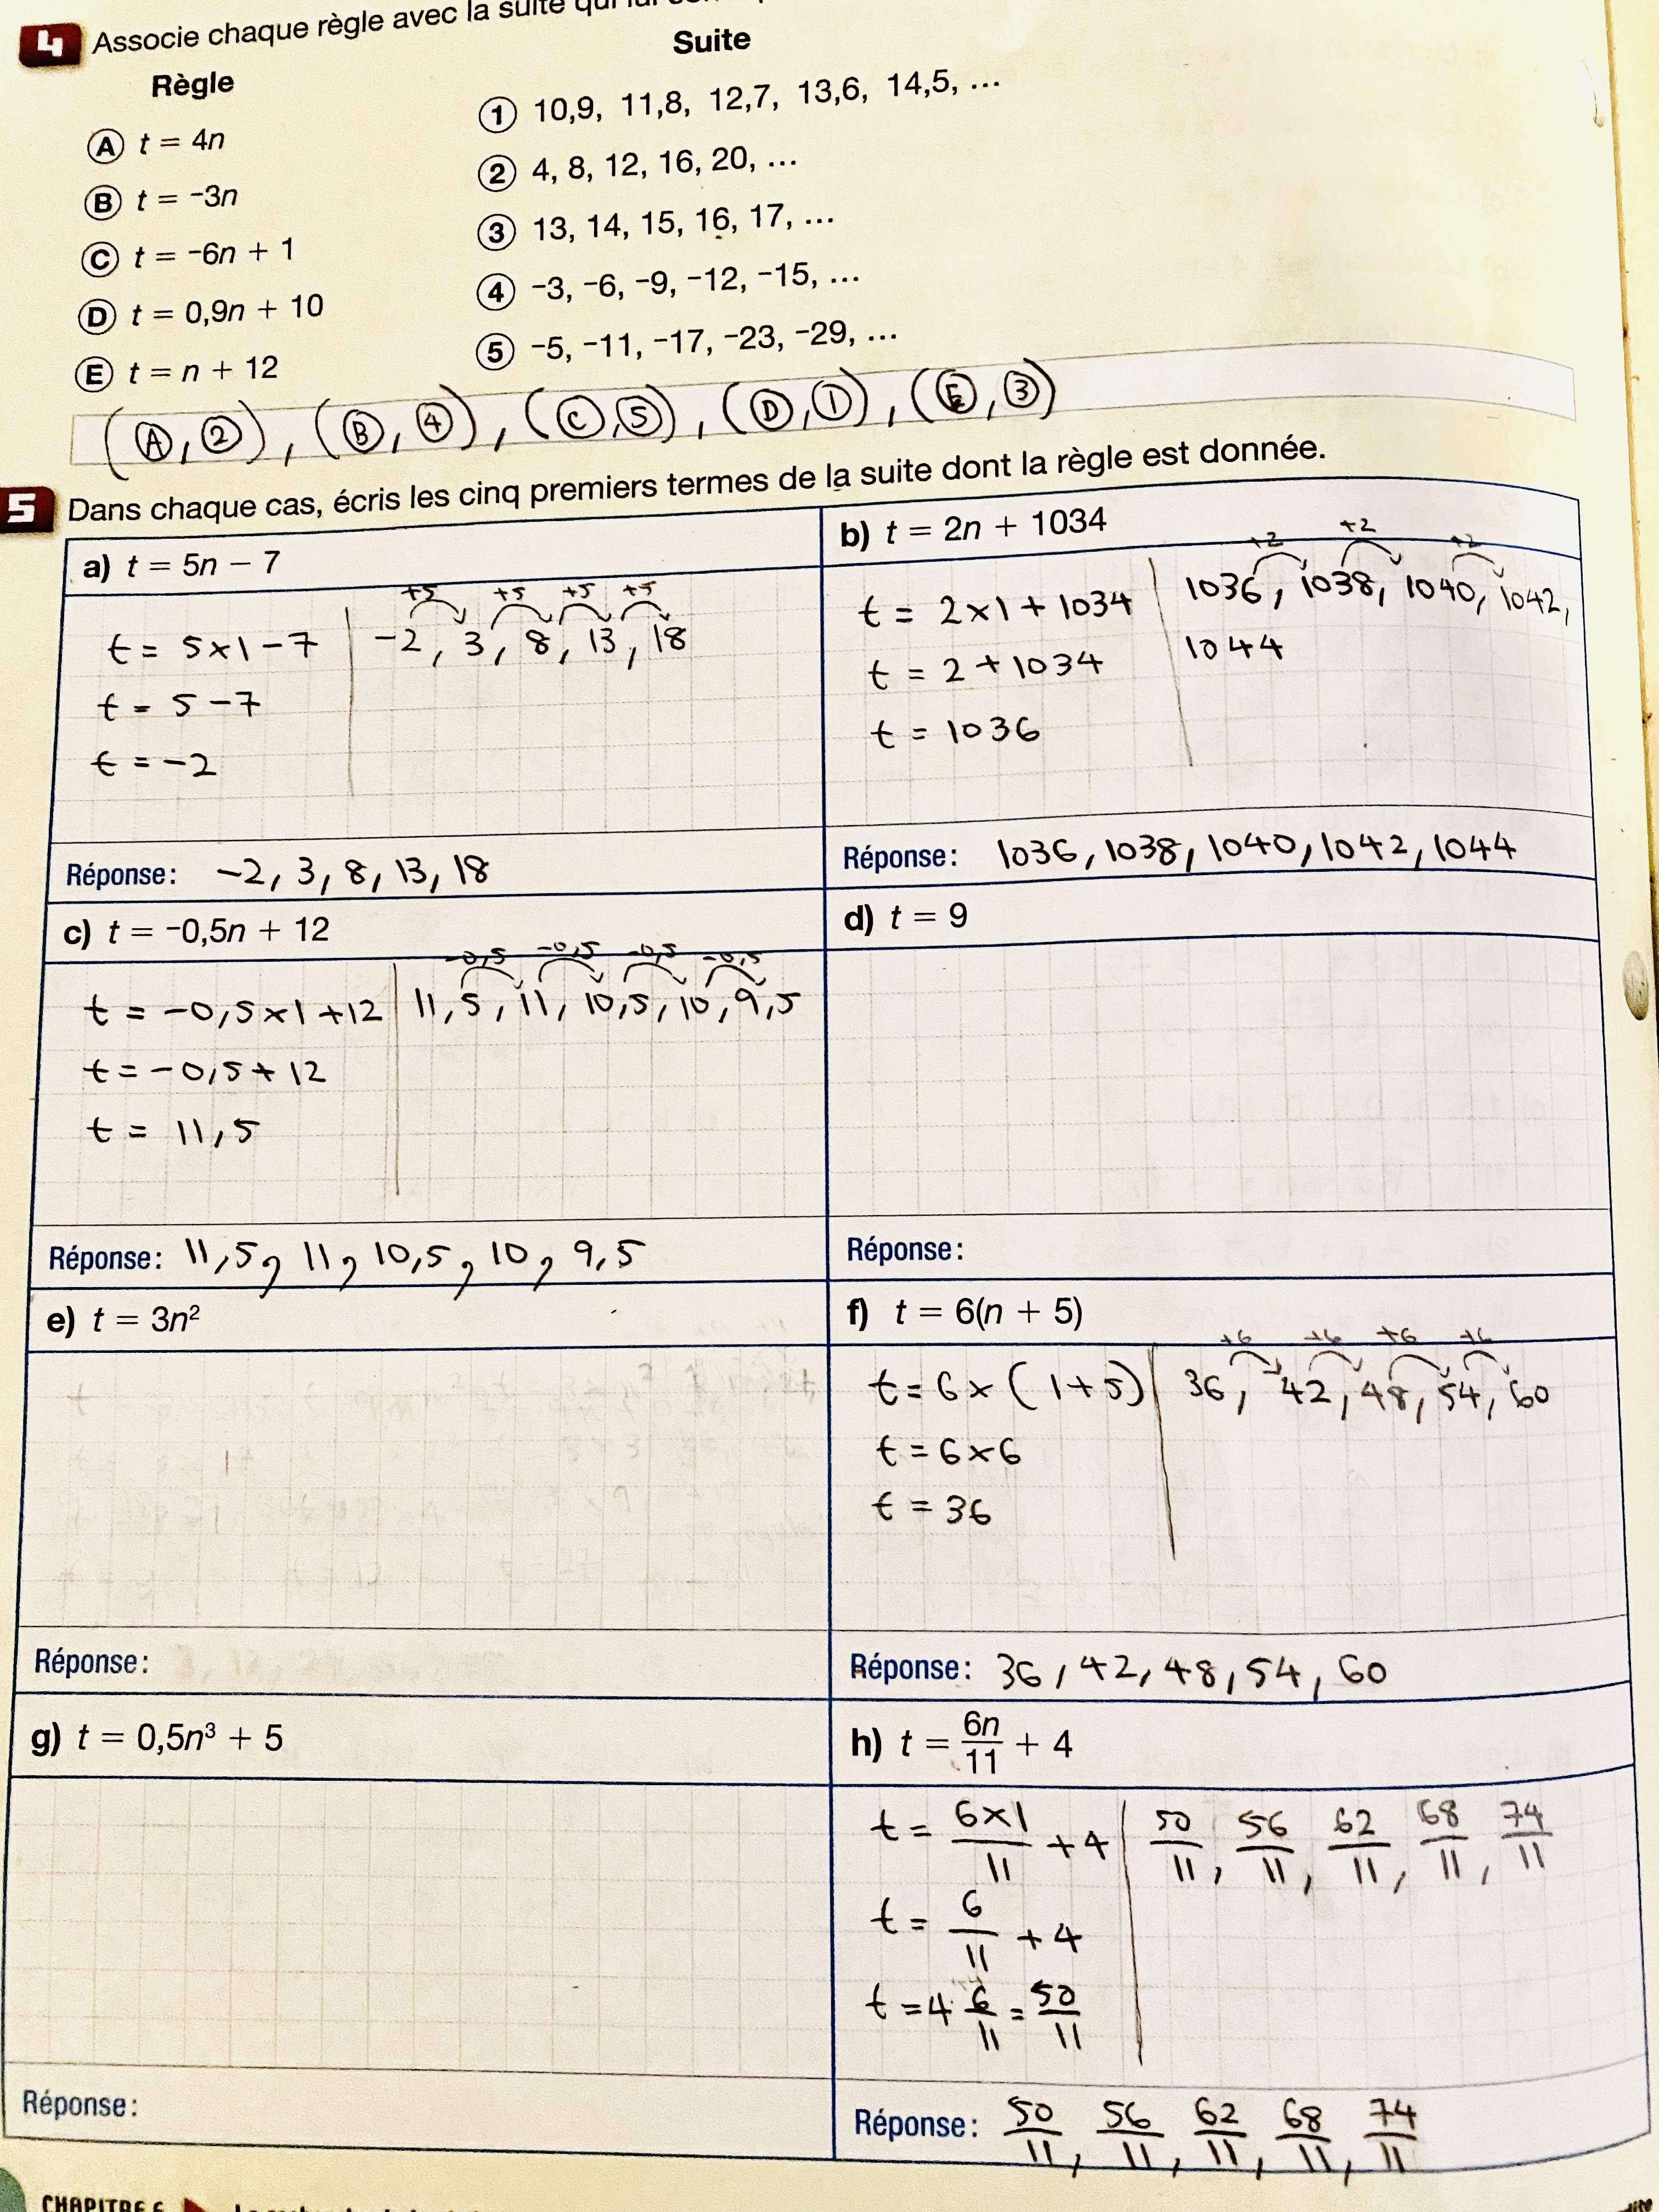 4 Associe chaque règle avec la suite
Règle
Suite
A t = 4n
B t = ⁻3n
C t = ⁻6n + 1
D t = 0,9n + 10
E t = n + 12
1 10,9, 11,8, 12,7, 13,6, 14,5, ...
2 4, 8, 12, 16, 20, ...
3 13, 14, 15, 16, 17, ...
4 ⁻3, ⁻6, ⁻9, ⁻12, ⁻15, ...
5 ⁻5, ⁻11, ⁻17, ⁻23, ⁻29, ...
(A, 2), (B, 4), (C, 5), (D, 1), (E, 3)
5 Dans chaque cas, écris les cinq premiers termes de la suite dont la règle est donnée.
a) t = 5n – 7
t = 5×1 - 7
t = 5 - 7
t = -2
+5 +5 +5 +5
-2, 3, 8, 13, 18
Réponse : -2, 3, 8, 13, 18
b) t = 2n + 1034
t = 2×1 + 1034
t = 2 + 1034
t = 1036
+2 +2 +2
1036, 1038, 1040, 1042,
1044
Réponse : 1036, 1038, 1040, 1042, 1044
c) t = ⁻0,5n + 12
t = -0,5×1 + 12
t = -0,5 + 12
t = 11,5
-0,5 -0,5 -0,5 -0,5
11,5, 11, 10,5, 10, 9,5
Réponse : 11,5, 11, 10,5, 10, 9,5
d) t = 9
Réponse :
e) t = 3n²
Réponse :
f) t = 6(n + 5)
t = 6 × (1+5)
t = 6×6
t = 36
+6 +6 +6 +6
36, 42, 48, 54, 60
Réponse : 36, 42, 48, 54, 60
g) t = 0,5n³ + 5
Réponse :
h) t = 6n/11 + 4
t = 6×1/11 + 4
t = 6/11 + 4
t = 4 6/11 = 50/11
50/11, 56/11, 62/11, 68/11, 74/11
Réponse : 50/11, 56/11, 62/11, 68/11, 74/11
CHAPITRE 6